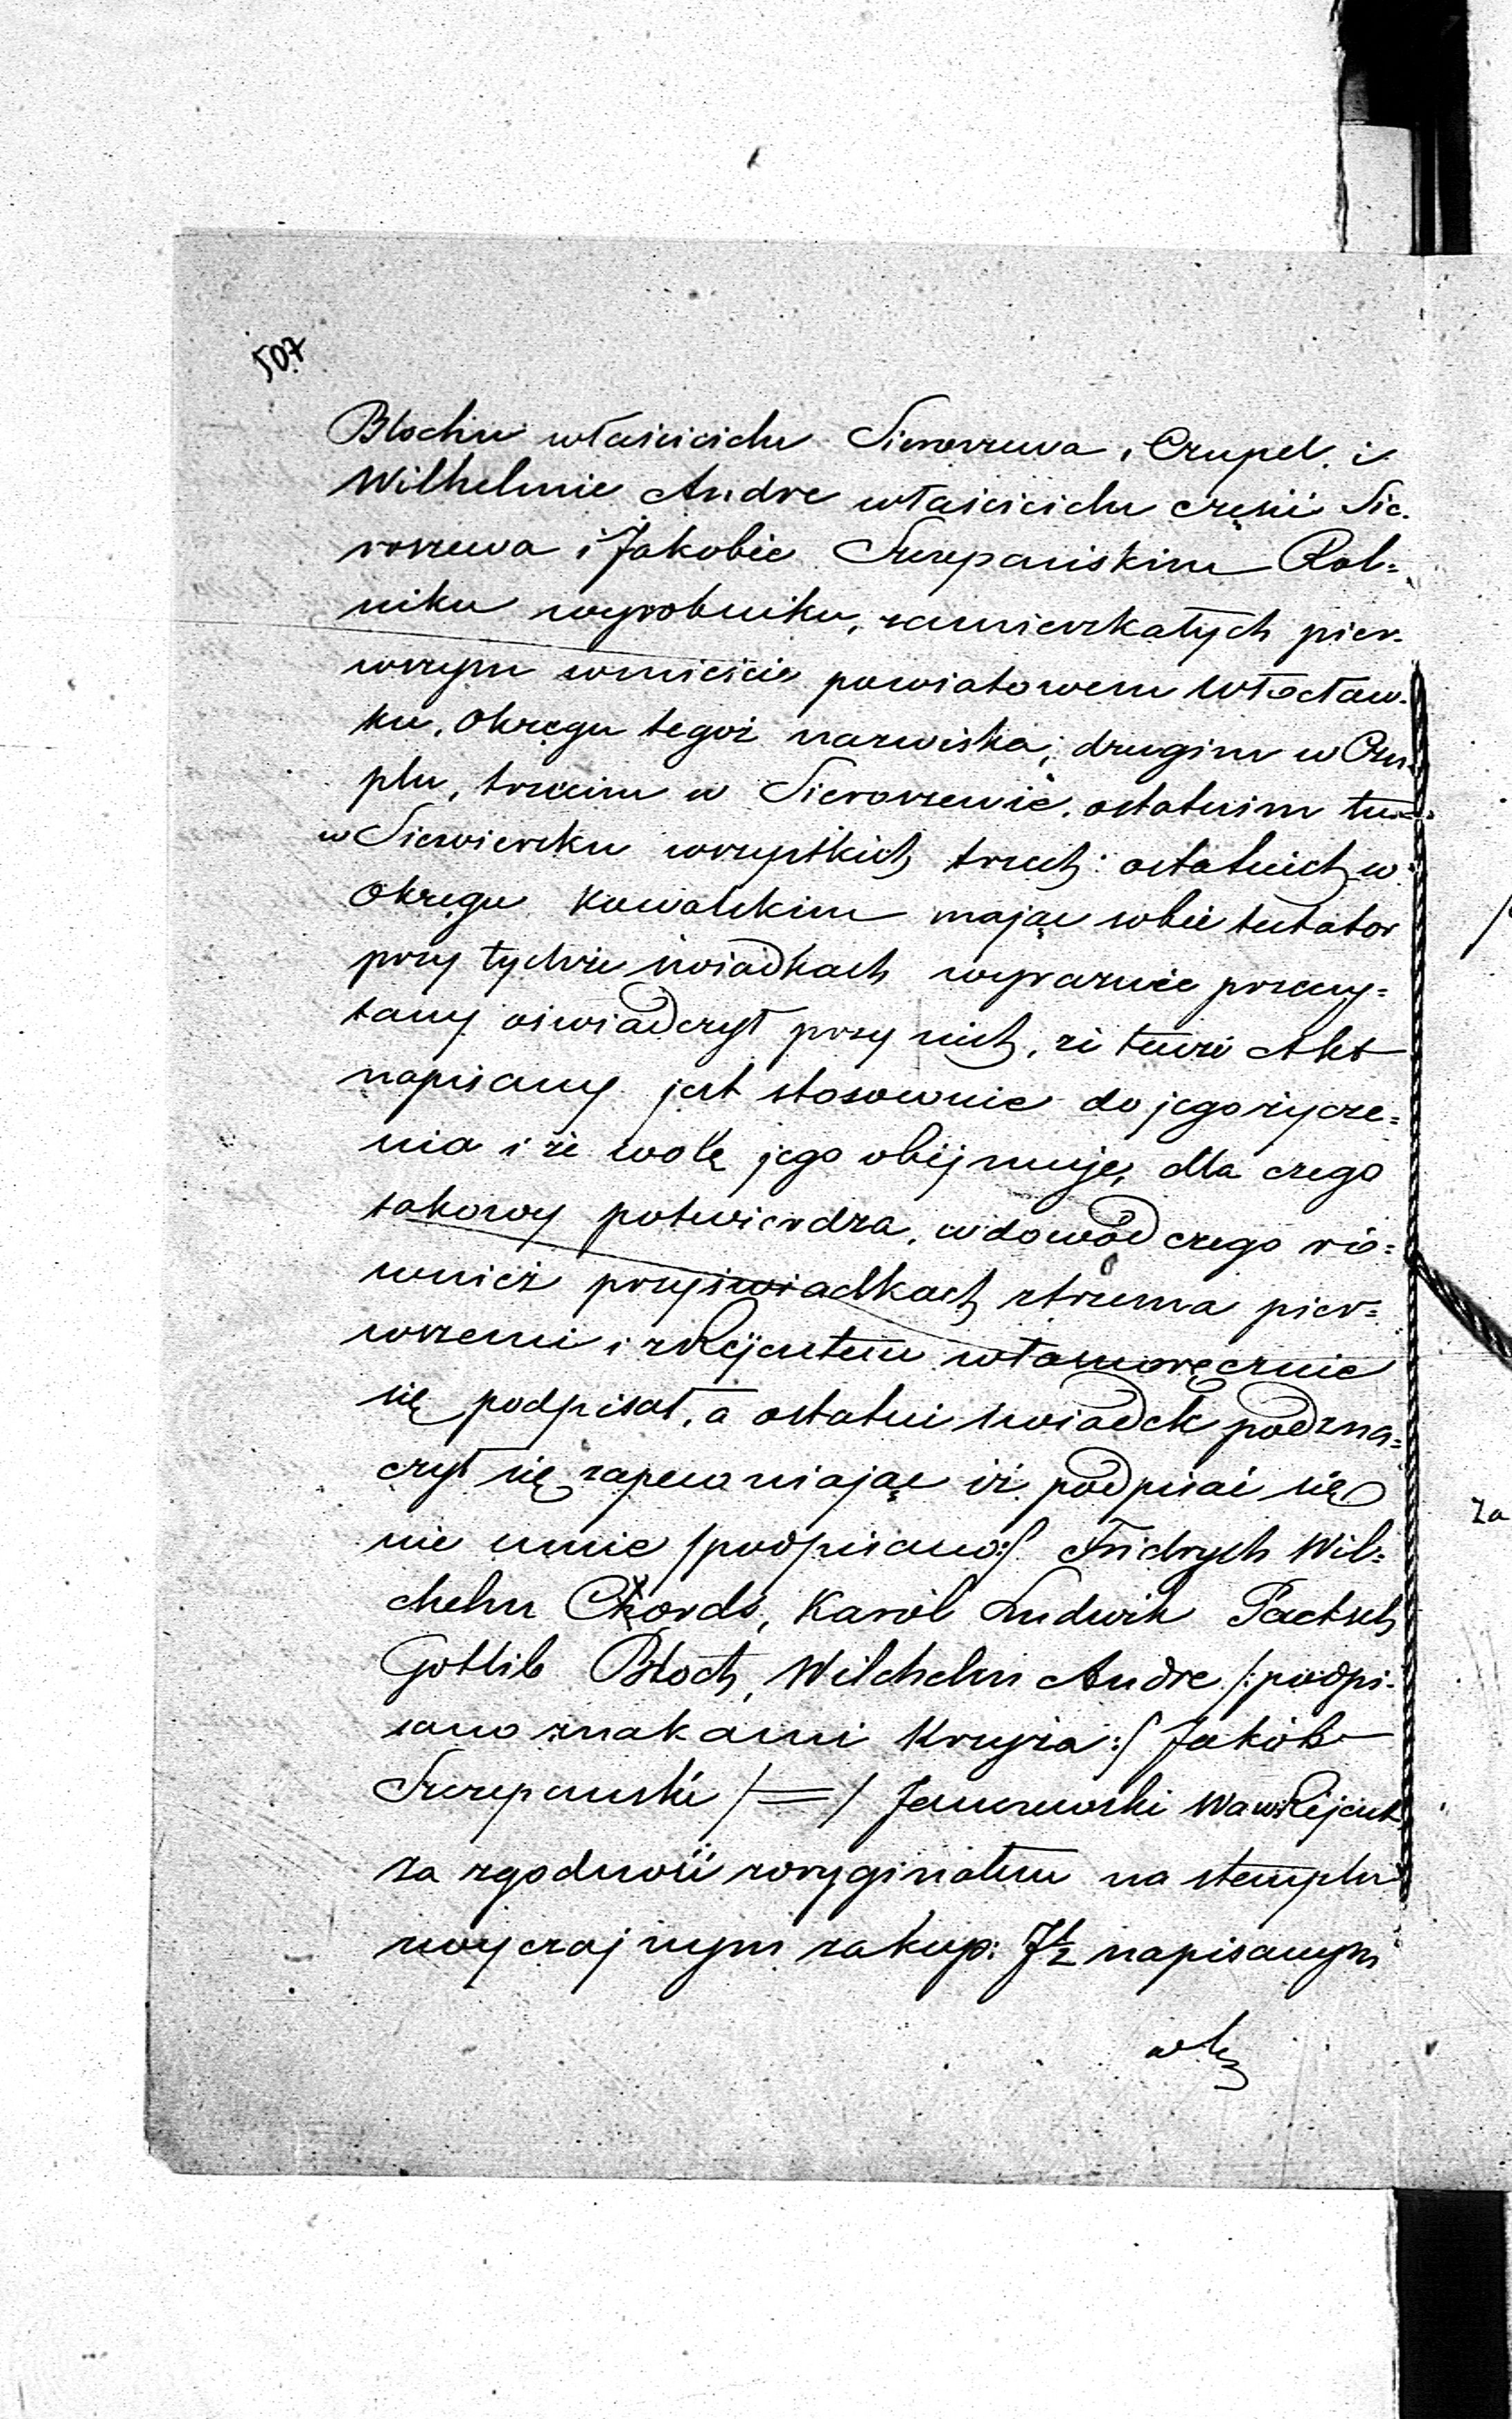 507
Blochu właścicielu Sieroszewa, Czupel. i
Wilhelmie Andre właścicielu części Sie-
roszewa i Jakobie Szczepańskim Rol=
niku wyrobniku, zamieszkałych pier-
wszym w mieście powiatowem Włocław-
ku, Okręgu tegoż nazwiska; drugim w Czu-
plu, trzecim w Sieroszewie, ostatnim tu
w Siewiersku wszystkich trzech ostatnich w
Okręgu Kowalskim mając sobie testator
przy tychże świadkach wyraźnie przeczy=
tany oświadczył przy nich, że tenże Akt
napisany jest stosownie do jego życze=
nia i że wolę jego obejmuje, dla czego
takowy potwierdza, w dowód czego ró=
wnież przy świadkach z trzema pier=
wszemi i z Rejentem własnoręcznie
się podpisał, a ostatni świadek podzna=
czył się zapewniając iż podpisać się
nie umie /podpisano:/ Fridrych Wil=
chelm Chords, Karól Ludwik
Gottlib Bloch, Wilchelm Andre /:podpi-
sano znakami Krzyża:/ Jakób
Szczepański /=/ Janczewski Rejent
za zgodność z oryginałem na stemplu
zwyczajnym za kop: 7½ napisanym
Za